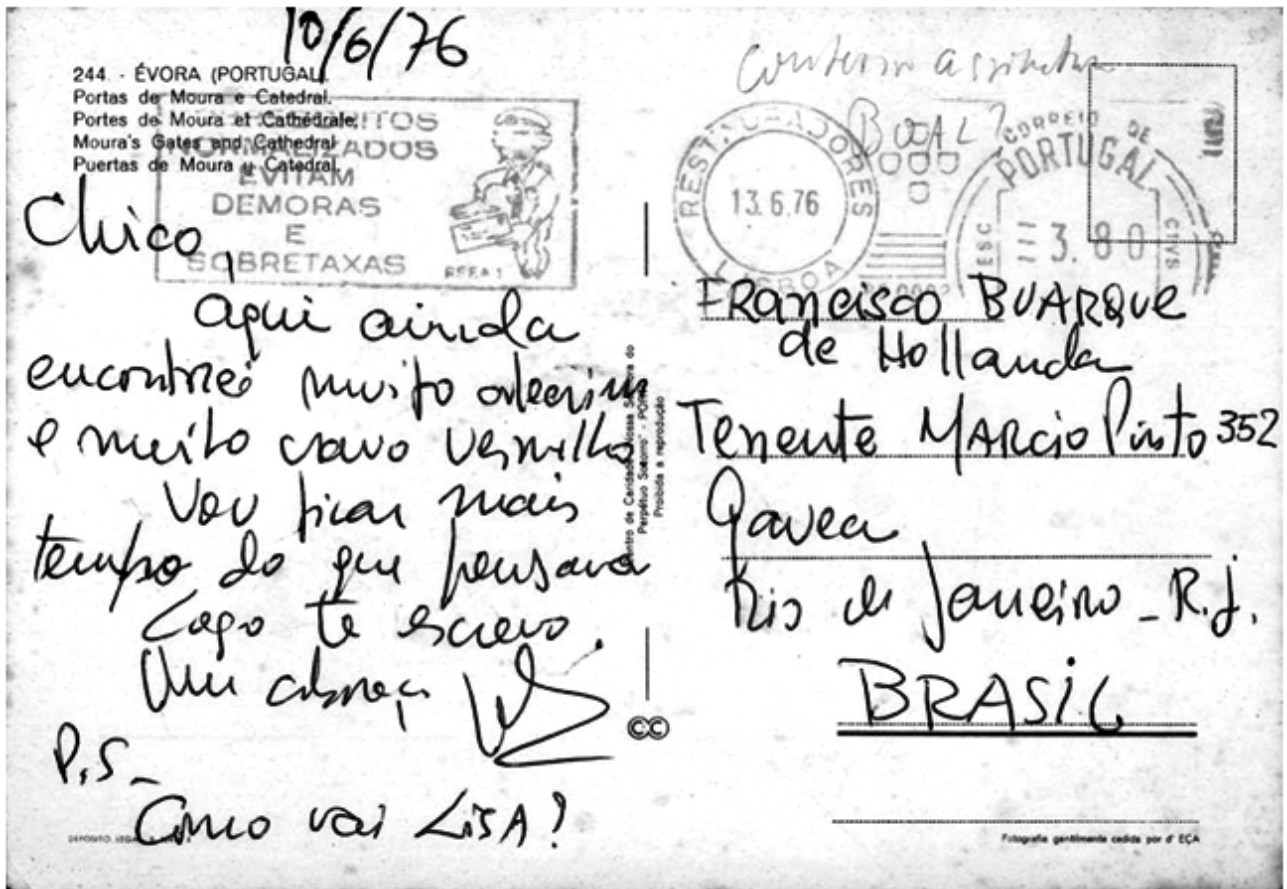 10/6/76
244 - ÉVORA (PORTUGAL)
Portas de Moura e Catedral.
Portes de Moura et Cathédrale.
Moura's Gates and Cathedral
Puertas de Moura y Catedral.
NORMALIZADOS
EVITAM
DEMORAS
E
SOBRETAXAS
Chico,
aqui ainda
encontrei muito alecrim
e muito cravo vermelho
Vou ficar mais
tempo do que pensava
Logo te escrevo.
Um abraço
P.S_
Como vai LiSA?
Perpétuo Socorro" - PORTO
Proibida a reprodução
CC
BOAL?
RESTAURADORES
13.6.76
LISBOA
CORREIO DE
PORTUGAL
ESC
3.80
CTVS
FRancisco BUARQUE
de Hollanda
Tenente MARCIO Pinto 352
Gavea
Rio de Janeiro - R.J.
BRASIL
Fotografia gentilmente cedida por d' EÇA